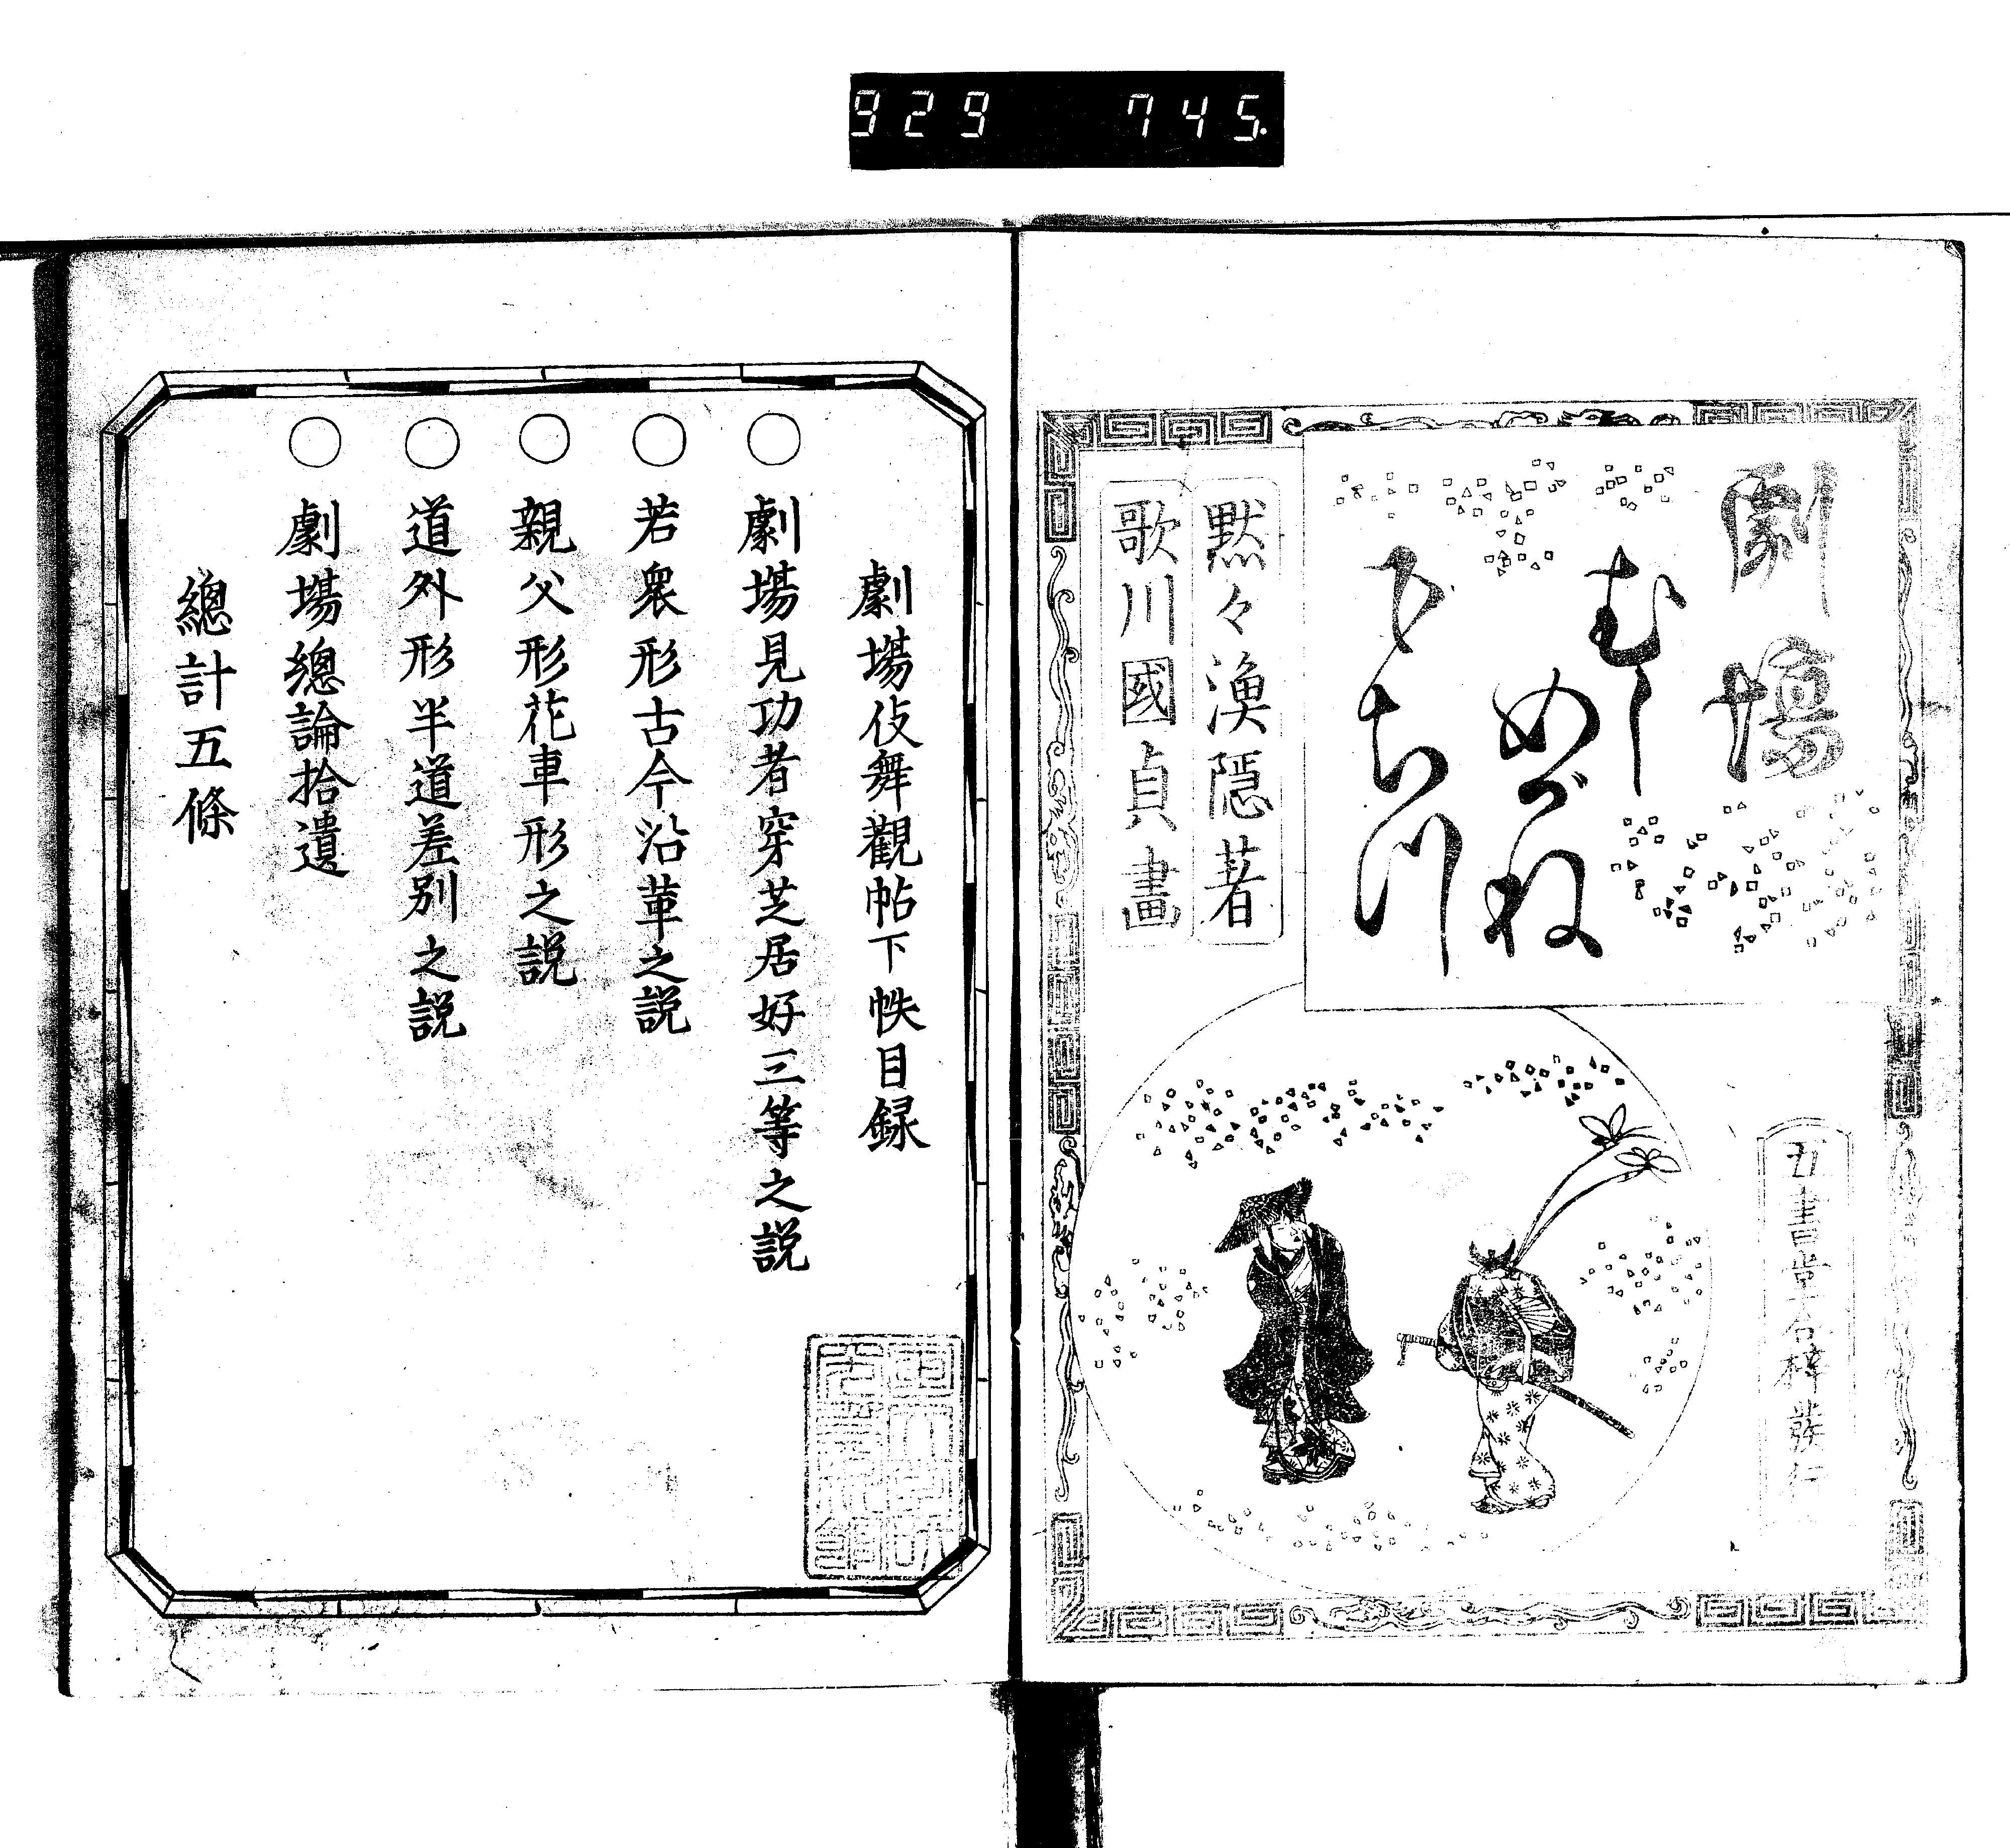 929 745.
劇場
むし
めがね
下ちつ
黙々漁隠著
歌川國貞畫
劇場伎舞觀帖下帙目録
○ 劇場見功者穿芝居好三等之説
○ 若衆形古今沿革之説
○ 親父形花車形之説
○ 道外形半道差別之説
○ 劇場總論拾遺
總計五條